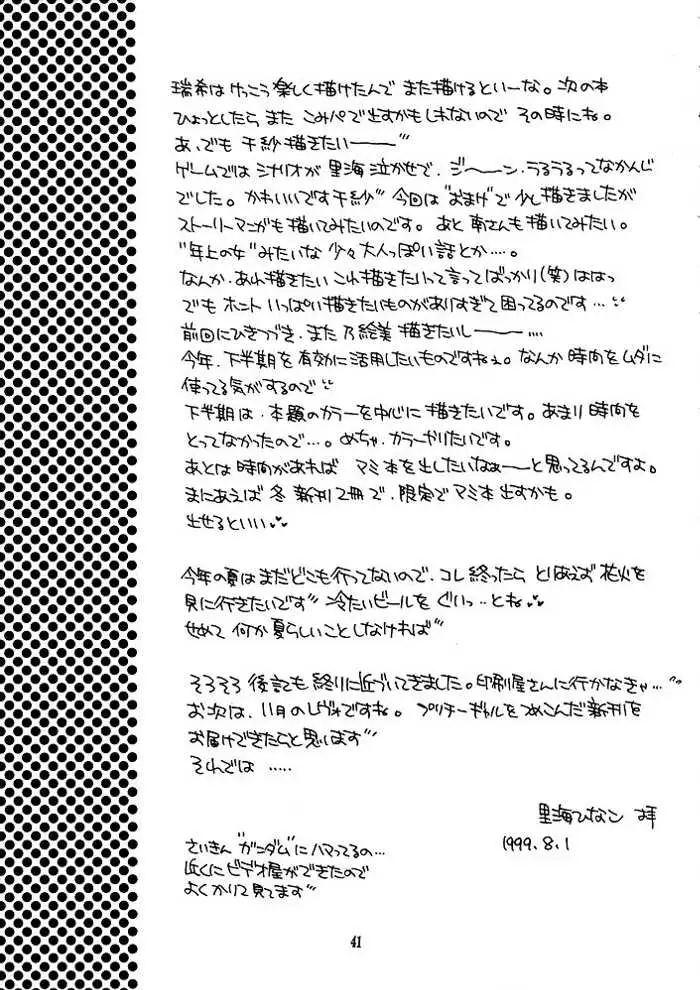 瑞希はけっこう楽しく描けたんで また描けるといーな。次の本
ひょっとしたら また こみパで出すかもしれないので その時にね。
あ、でも 千紗描きたいーーー"
ゲームでは シナリオが 里海 泣かせで、ジ〜〜ン・うるうるってなかんじ
でした。かわいいです千紗" 今回は "おまけ"で 少し描きましたが
ストーリーマンガも描いてみたいのです。あと 南さんも描いてみたい。
"年上の女"みたいな 少々大人っぽい話とか…。
なんか・あれ描きたい これ描きたいって言ってばっかり(笑)ははっ
でも ホント いっぱい描きたいものがありすぎて 困ってるのです…
前回にひきつづき、また 乃絵美 描きたいしーーー…
今年、下半期を有効に活用したいものですねぇ。なんか時間をムダに
使ってる気がするので
下半期は、本題のカラーを中心に描きたいです。あまり時間を
とってなかったので…。めちゃ、カラーやりたいです。
あとは 時間があれば マミ本を出したいなぁーーと思ってるんですよ。
まにあえば 冬 新刊2冊で、限定で マミ本 出すかも。
出せるといい♥♥
今年の夏は まだどこも行ってないので、コレ終ったら とりあえず 花火を
見に行きたいです" 冷たいビールを ぐいっ‥とね♥♥
せめて 何か夏らしいことしなければ"
そろそろ 後記も終りに近づいてきました。印刷屋さんに行かなきゃ…"
お次は、11月のレヴォですね。 プリチーギャルをつめこんだ新刊を
お届けできたらと思います"
それでは ……
里海ひなこ 拝
1999.8.1
さいきん "ガンダム"に ハマってるの…
近くに ビデオ屋ができたので
よく かりて 見てます"
41